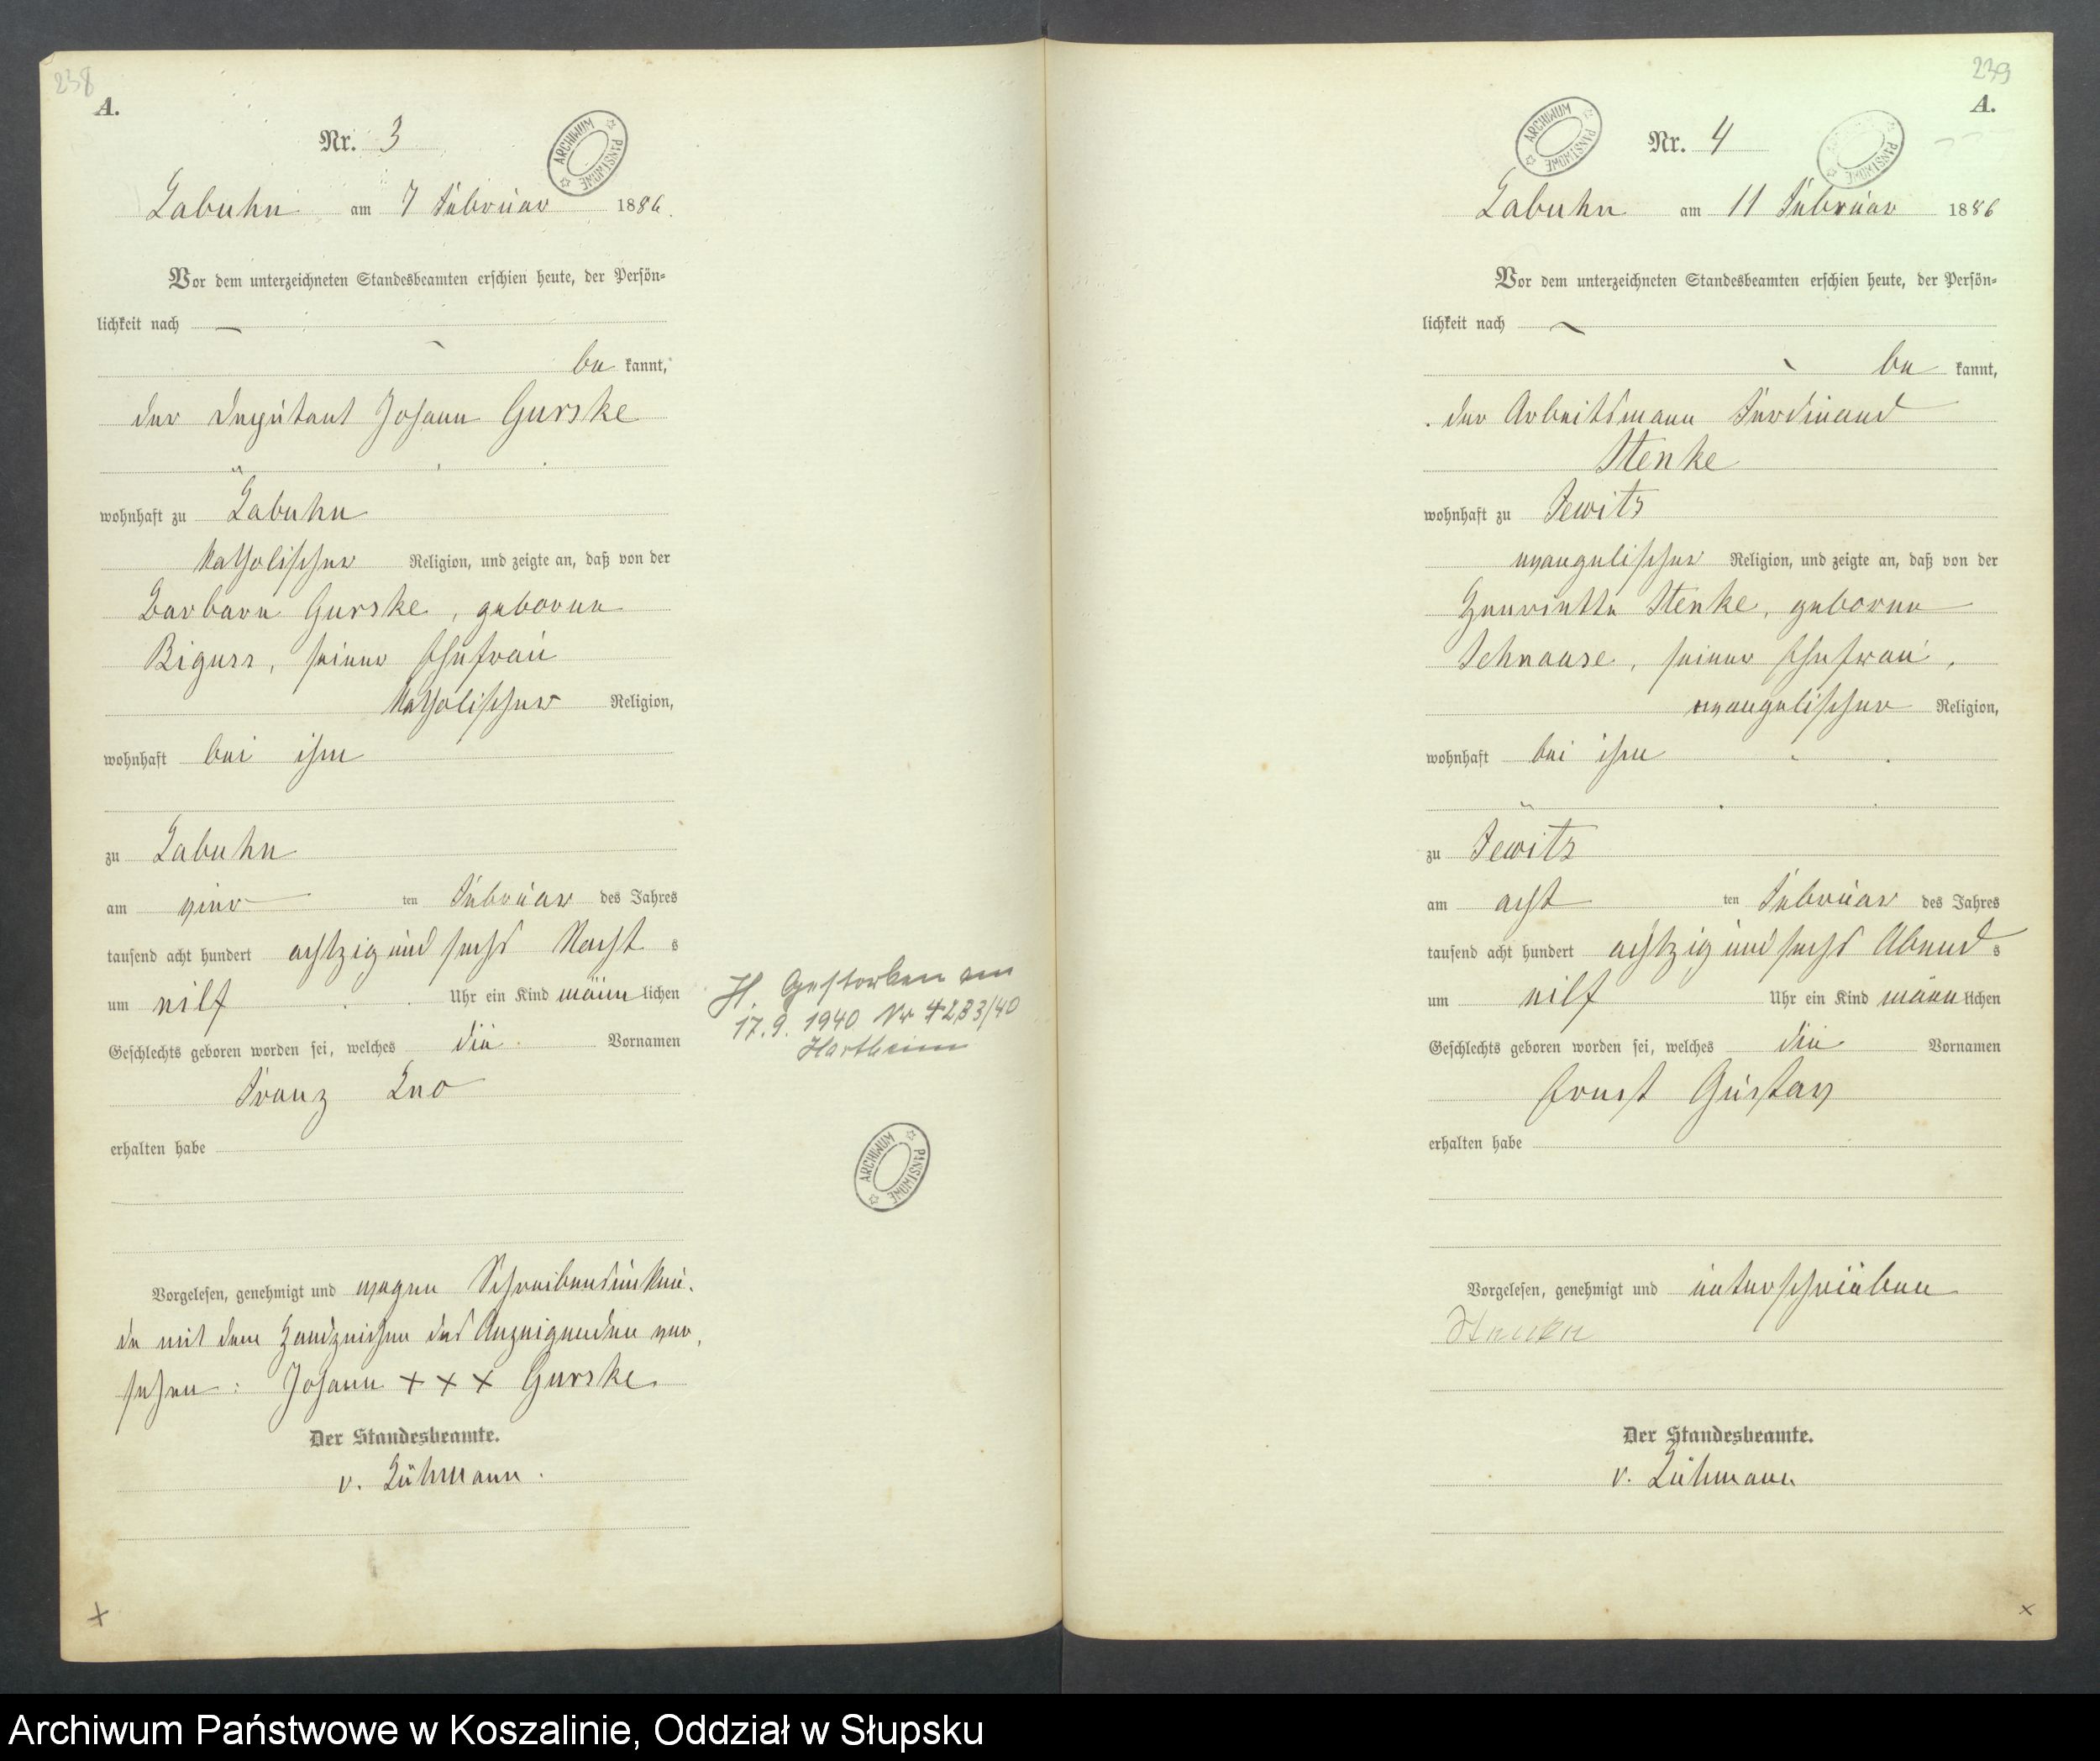 238
A.
Nr. 3
ARCHIWUM PANSTWOWE
Labuhn am 7 Februar 1886.
Vor dem unterzeichneten Standesbeamten erschien heute, der Persön-
lichkeit nach
be kannt,
der Deputant Johann Gurske
wohnhaft zu Labuhn
katholischer Religion, und zeigte an, daß von der
Barbara Gurske, geborene
Biguss, seiner Ehefrau
katholischer Religion,
wohnhaft bei ihm
zu Labuhn
am vier ten Februar des Jahres
tausend acht hundert achtzig und sechs Nacht s
um elf Uhr ein Kind männ lichen
Geschlechts geboren worden sei, welches die Vornamen
Franz Leo
erhalten habe
Vorgelesen, genehmigt und wegen Schreibensunkun-
de mit dem Handzeichen des Anzeigenden ver-
sehen: Johann +++ Gurske.
Der Standesbeamte.
v. Lühmann.
H. Gestorben am
17.9. 1940 Nr 4283/40
Hartheim
ARCHIWUM PANSTWOWE
239
A.
ARCHIWUM PANSTWOWE
Nr. 4
ARCHIWUM PANSTWOWE
Labuhn am 11 Februar 1886
Vor dem unterzeichneten Standesbeamten erschien heute, der Persön-
lichkeit nach
be kannt,
der Arbeitsmann Ferdinand
Stenke
wohnhaft zu Jewitz
evangelischer Religion, und zeigte an, daß von der
Henriette Stenke, geborene
Schnaase, seiner Ehefrau,
evangelischer Religion,
wohnhaft bei ihm
zu Jewitz
am acht ten Februar des Jahres
tausend acht hundert achtzig und sechs Abend s
um elf Uhr ein Kind männ lichen
Geschlechts geboren worden sei, welches die Vornamen
Ernst Gustav
erhalten habe
Vorgelesen, genehmigt und unterschrieben
Stenke
Der Standesbeamte.
v. Lühmann
Archiwum Państwowe w Koszalinie, Oddział w Słupsku